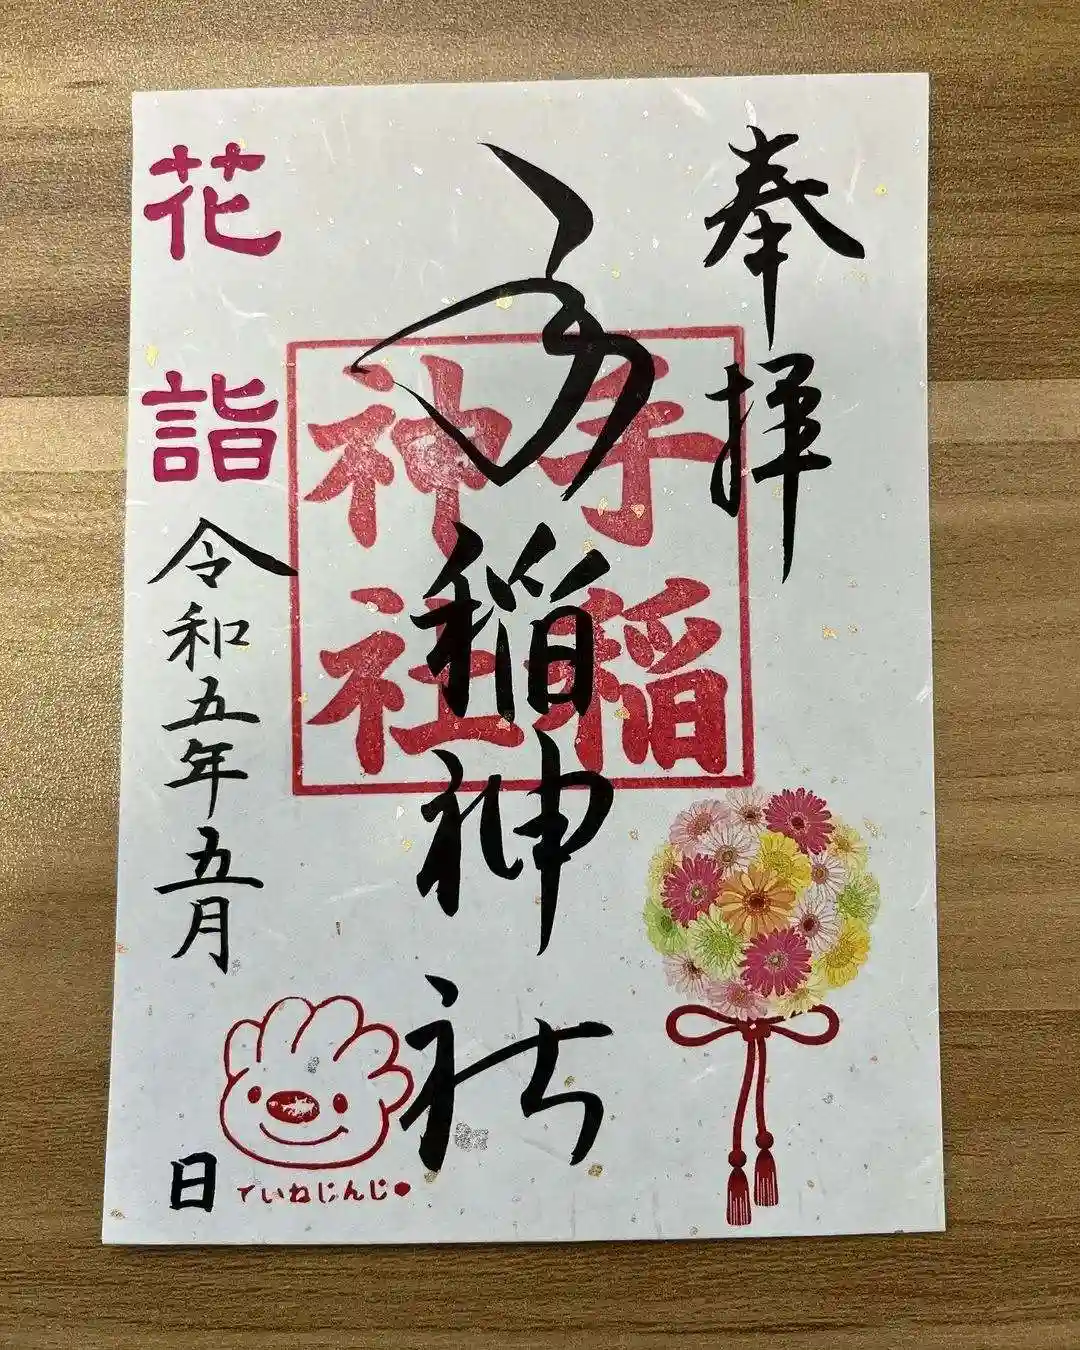 奉拝
手稲神社
手稲神社
花詣
令和五年五月 日
ていねじんじ